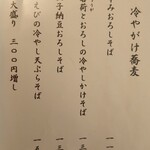 冷やがけ蕎麦
みおろしそば
荷とおろしの冷やしかけそば
子納豆おろしそば
えびの冷やし天ぷらそば
大盛り 三〇〇円増し